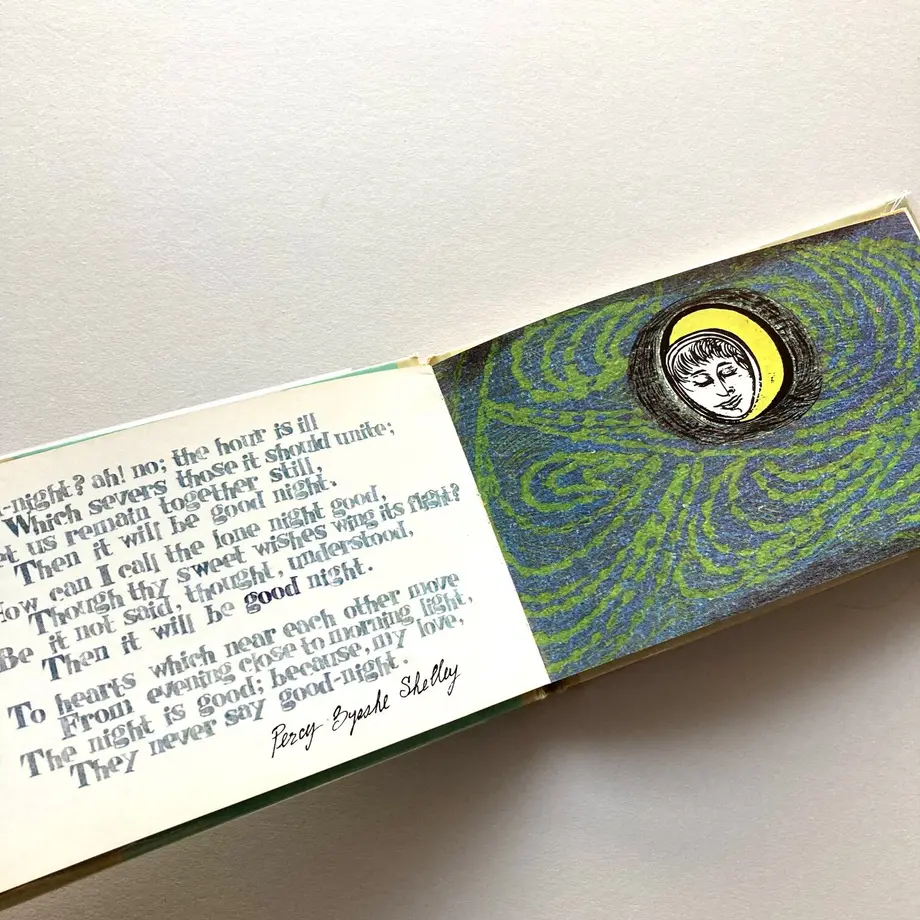 -night? ah! no; the hour is ill
Which severs those it should unite;
et us remain together still,
Then it will be good night.
How can I call the lone night good,
Though thy sweet wishes wing its flight?
Be it not said, thought, understood,
Then it will be good night.
To hearts which near each other move
From evening close to morning light,
The night is good; because, my love,
They never say good-night.
Percy Bysshe Shelley